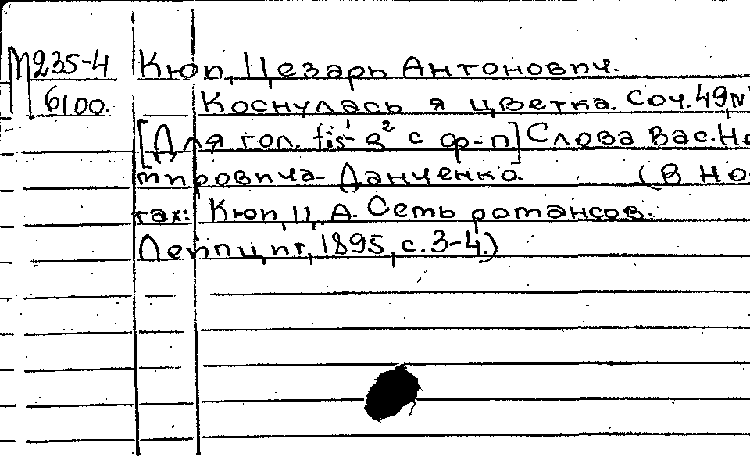 М235-4 Кюи, Цезарь Антонович.
6100. Коснулась я цветка. Соч. 49, №
[Для гол. fis¹-g² с ф-п] Слова Вас. Не
мировича-Данченко. (В но-
тах: Кюи, Ц. А. Семь романсов.
Лейпциг, 1895, с. 3-4.)